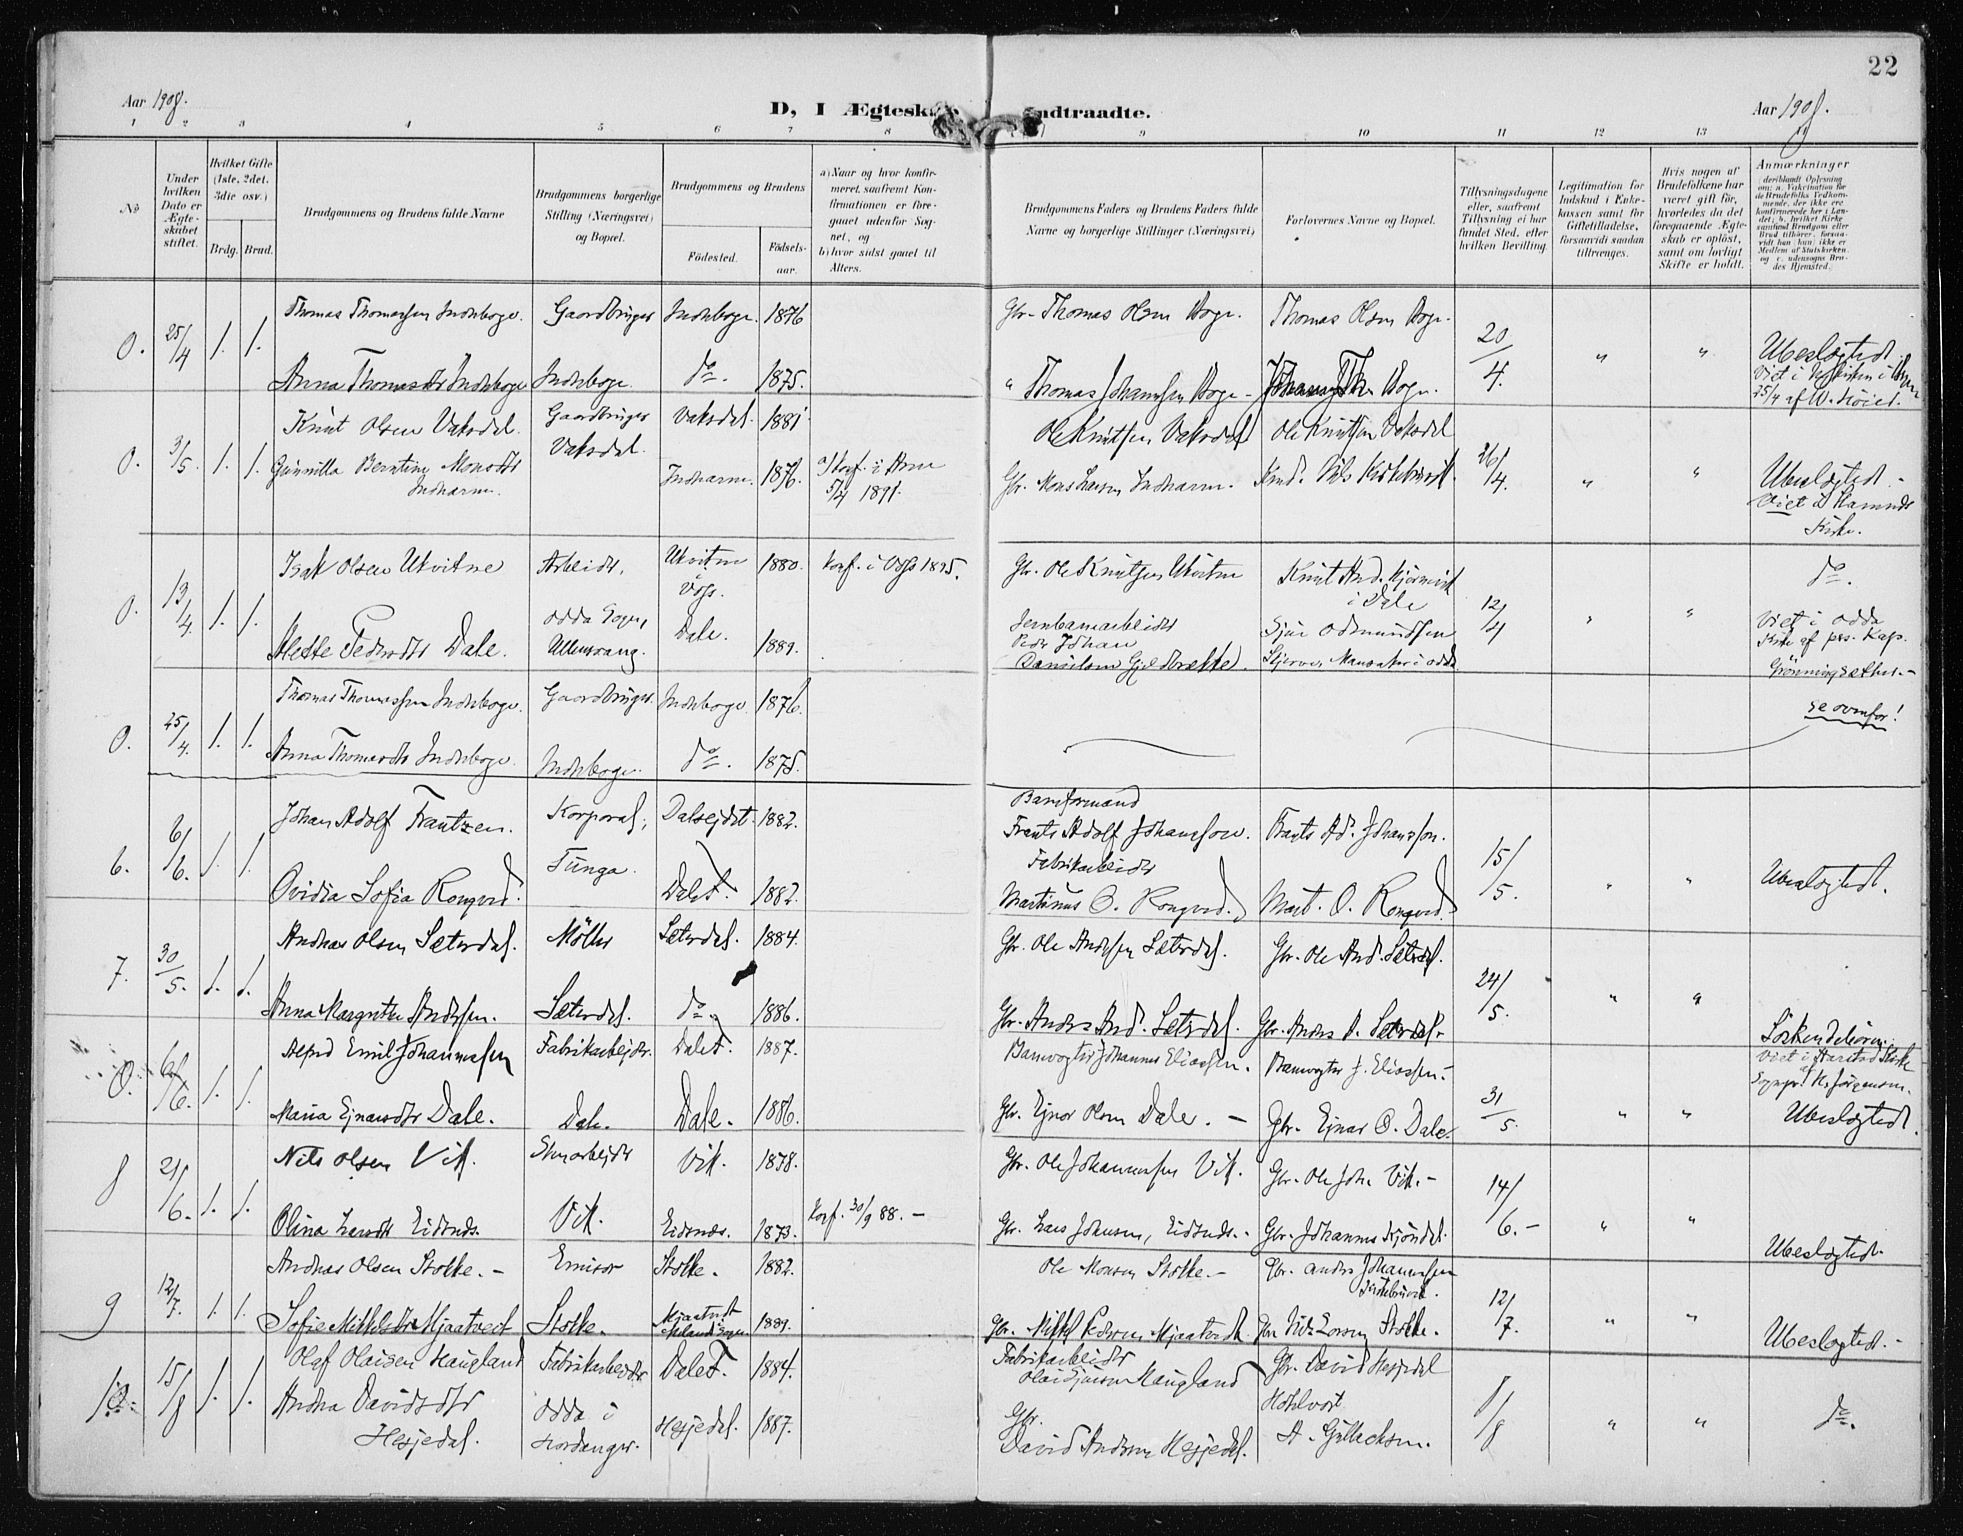 22
Aar 1908.
D, I Ægteskab indtraadte.
Aar 1908.
1 2 3 4 5 6 7 8 9 10 11 12 13 14
No
Under hvilken Dato er Ægteskabet stiftet.
Hvilket Gifte (1ste, 2det, 3die osv.)
Brdg. Brud.
Brudgommens og Brudens fulde Navne
Brudgommens borgerlige Stilling (Næringsvei) og Bopæl.
Brudgommens og Brudens
Fødested.
Fødselsaar.
a) Naar og hvor konfirmeret, saafremt Konfirmationen er foregaaet udenfor Sognet, og
b) hvor sidst gaaet til Alters.
Brudgommens Faders og Brudens Faders fulde Navne og borgerlige Stillinger (Næringsvei)
Forlovernes Navne og Bopæl.
Tillysningsdagene eller, saafremt Tillysning ei har fundet Sted, efter hvilken Bevilling.
Legitimation for Indskud i Enkekassen samt for Giftetilladelse, forsaavidt saadan tiltrænges.
Hvis nogen af Brudefolkene har været gift før, hvorledes da det foregaaende Ægteskab er opløst, samt om lovligt Skifte er holdt.
Anmærkninger
0. 25/4 1. 1. Thomas Thomassen Indreboge. Gaardbruger Indreboge. 1876 Gbr. Thomas Olsen Boge. Thomas Olsen Boge. 20/4. " " Ubeslægtet.
Anna Thomasdtr Indreboge Indreboge. do. 1875. " Thomas Johannsen Boge - Johannes Th. Boge.
25/4 af
0. 3/5. 1. 1. Knut Olsen Vaksdal. Gaardbruger Vaksdal. Vaksdal. 1881 Ole Knutsen Vaksdal Ole Knutsen Vaksdal 26/4. " " Ubeslægtet. -
Gunnilla Berntine Monsdtr Indrearne. Indrearne. 1876. a) Konf. i Arne 5/4 1891. Gbr. Mons Larsen Indrearne. Nils Viet i Hamre Kirke.
0. 13/4. 1. 1. Isak Olsen Ukvitne Arbeider, Ukvitne Voss. 1880. Konf. i Voss 1895. Gbr. Ole Knutsen Ukvitne Knut And. i Dale 12/4 " " do.
Mette Pedersdtr Dale. Odda Sogn, Ullensvang. Dale. 1889. Jernbanearbeider Peder Johan Danielsen Sjur Odmundsen i Odda Viet i Odda Kirke af pers. Kap. Grønningsæther. -
0. 25/4. 1. 1. Thomas Thomassen Indreboge. Gaardbruger. Indreboge 1876. se ovenfor!
Anna Thomasdtr Indreboge. Indreboge. do. 1875.
6. 6/6. 1. 1. Johan Adolf Frantzen. Korporal, Tunga. Dalseidet. 1882. Baneformand Frants Adolf Johansson. Frants Ad. Johansson. 15/5. " " Ubeslægtet.
Ovidia Sofia Rongved. Dalef. 1882. Fabrikarbeider Martinus O. Rongved. Mart. O. Rongved.
7. 30/5. 1. 1. Andreas Olsen Sæterdal. Møller Sæterdal. 1884. Gbr. Ole Andersen Sæterdal. Gbr. Ole And. Sæterdal. 24/5. " "
Anna Margrethe Andersen. Sæterdal. do. 1886. Gbr. Anders And. Sæterdal. Gbr. Anders A. Sæterdal - Søskendebørn.
0. 6/6. 1. 1. Alfred Emil Johannessen Fabrikarbeider. Dalef. 1887. Banevogter Johannes Eliassen. Banevogter J. Eliassen. 31/5 " " Viet i Aarstad Kirke af Sognepr. Jørgensen.
Maria Ejnarsdtr Dale. Dale. Dale. 1886. Gbr. Ejnar Olsen Dale. - Gbr. Ejnar O. Dale. Ubeslægtet.
8 21/6. 1. 1. Nils Olsen Vik. Vik. 1878. Gbr. Ole Johannessen Vik. Gbr. Ole Joh. Vik. - 14/6. - " " Ubeslægtet.
Olina Larsdtr Eidsnes. Vik. Eidsnes. 1873. Konf. 30/9 88. - Gbr. Lars Johansen, Eidsnes. - Gbr. Johannes
9 12/7. 1. 1. Andreas Olsen Stokke. - Emissær Stokke. 1882. Ole Monsen Stokke. - Gbr. Anders Johannessen 12/7. " " Ubeslægtet. -
Sofie Mikkelsdtr Mjaatveit Stokke. Mjaatveit 1889. Gbr. Mikkel Pedersen Mjaatveit. Gbr. Nils Larsen Stokke.
10. 15/8 1. 1. Olaf Olaisen Haugland Fabrikarbeider Dalef. 1884. Fabrikarbeider Haugland Gbr. David Hesjedal 1/8 " " do.
Andrea Davidsdtr Hesjedal. Odda i Hardanger. Hesjedal. 1887. Gbr. David Andersen Hesjedal. A. Gullachsen.